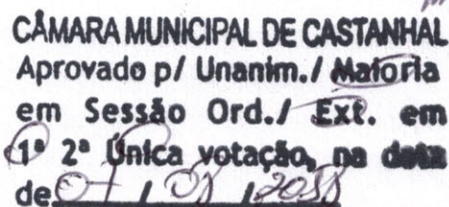 CÂMARA MUNICIPAL DE CASTANHAL
Aprovado p/ Unanim./ Maioria
em Sessão Ord./ Ext. em
1ª 2ª Única votação, na data
de 07 / 08 /